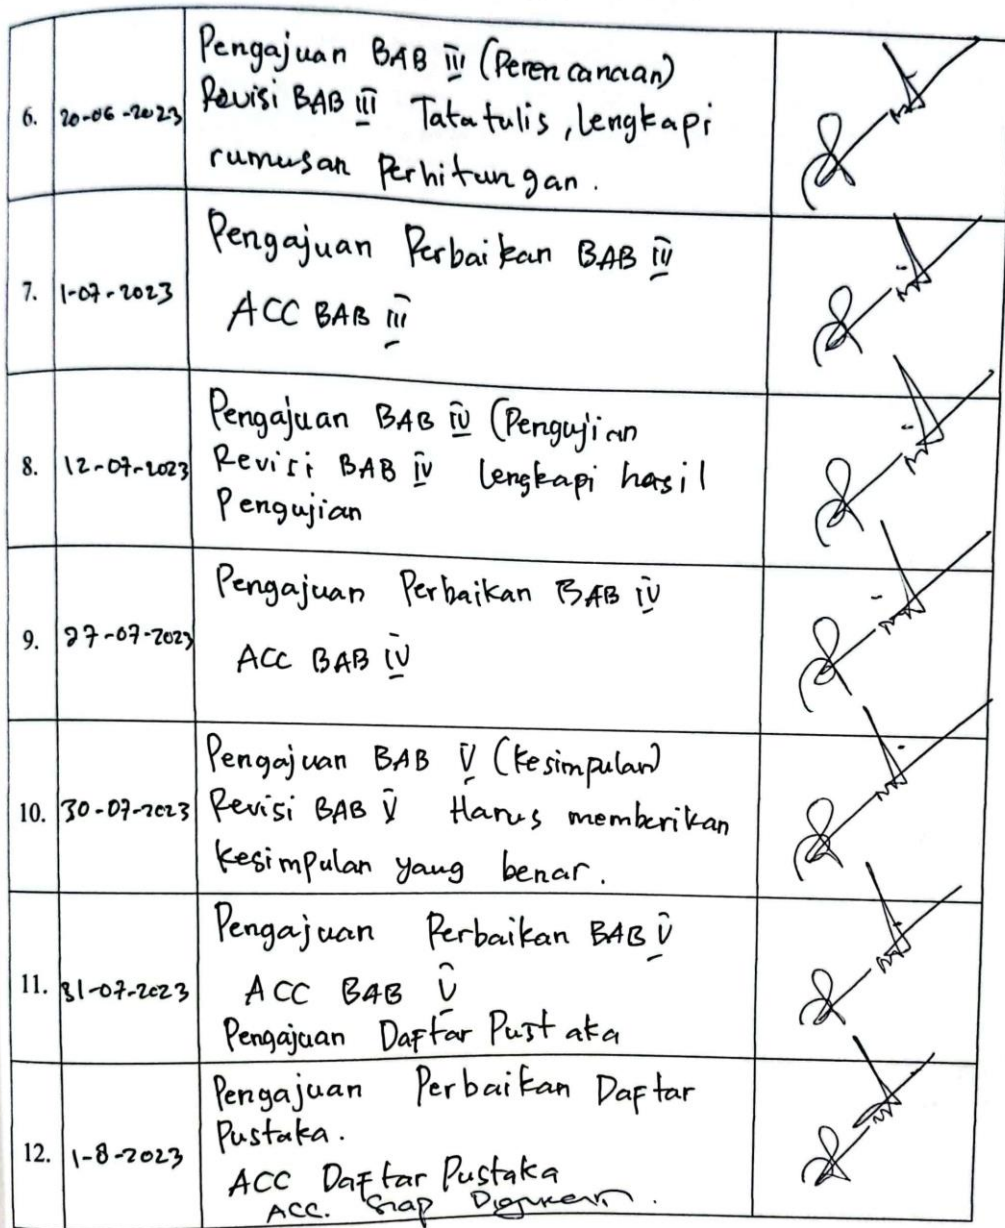 6. 20-06-2023 Pengajuan BAB III (Perencanaan)
Revisi BAB III Tata tulis, lengkapi
rumusan Perhitungan.
7. 1-07-2023 Pengajuan Perbaikan BAB III
ACC BAB III
8. 12-07-2023 Pengajuan BAB IV (Pengujian
Revisi BAB IV lengkapi hasil
Pengujian
9. 27-07-2023 Pengajuan Perbaikan BAB IV
ACC BAB IV
10. 30-07-2023 Pengajuan BAB V (Kesimpulan)
Revisi BAB V Harus memberikan
Kesimpulan yang benar.
11. 31-07-2023 Pengajuan Perbaikan BAB V
ACC BAB V
Pengajuan Daftar Pustaka
12. 1-8-2023 Pengajuan Perbaikan Daftar
Pustaka.
ACC Daftar Pustaka
ACC. Siap